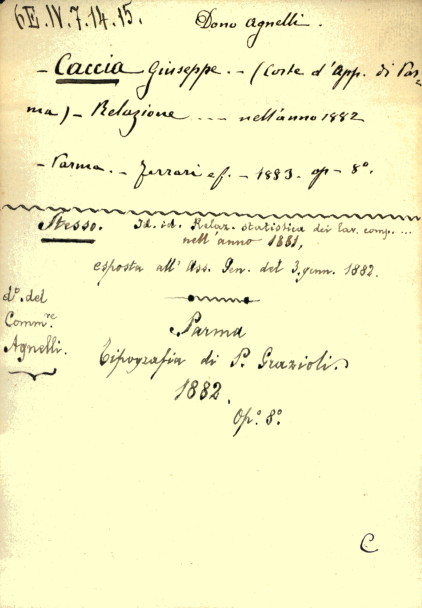 6E.IV.7.14.15. Dono Agnelli.
- Caccia Giuseppe. - (Corte d'App. di Par=
ma) - Relazione ... nell'anno 1882
- Parma. - Ferrari e f. - 1883. op - 8º.
Stesso. Id. id. Relaz. statistica dei lav. comp. ...
nell'anno 1881,
esposta all'Ass. Gen. del 3. genn. 1882.
dº. del
Comm.re
Agnelli.
Parma
Tipografia di P. Grazioli.
1882.
Op.º 8º.
C